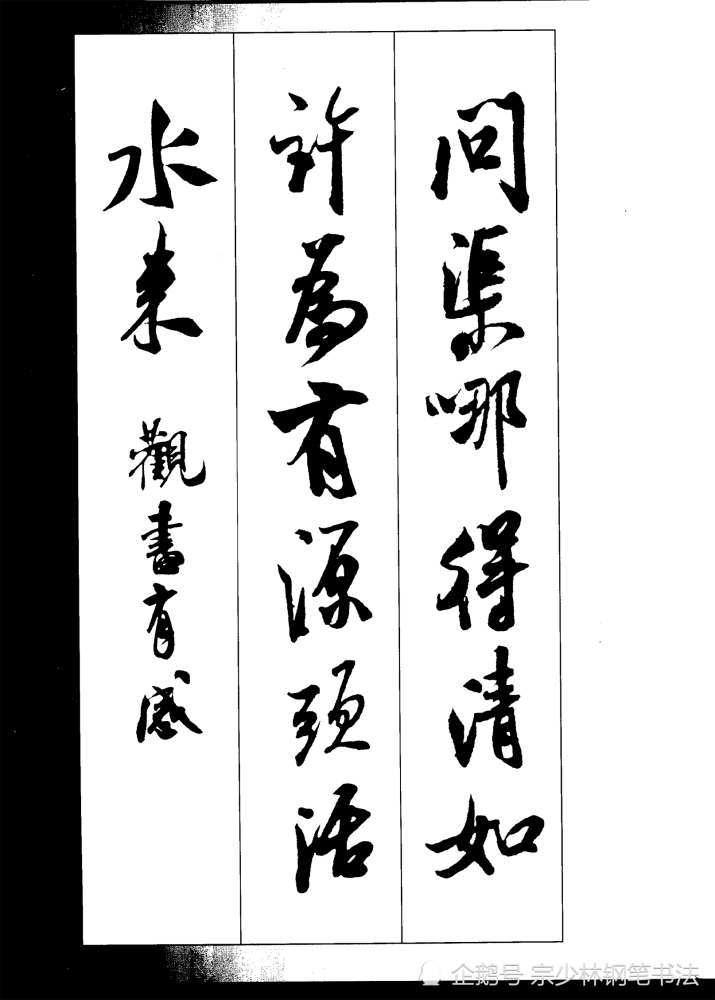 問渠哪得清如
許為有源頭活
水来
觀書有感
企鹅号 宗少林钢笔书法